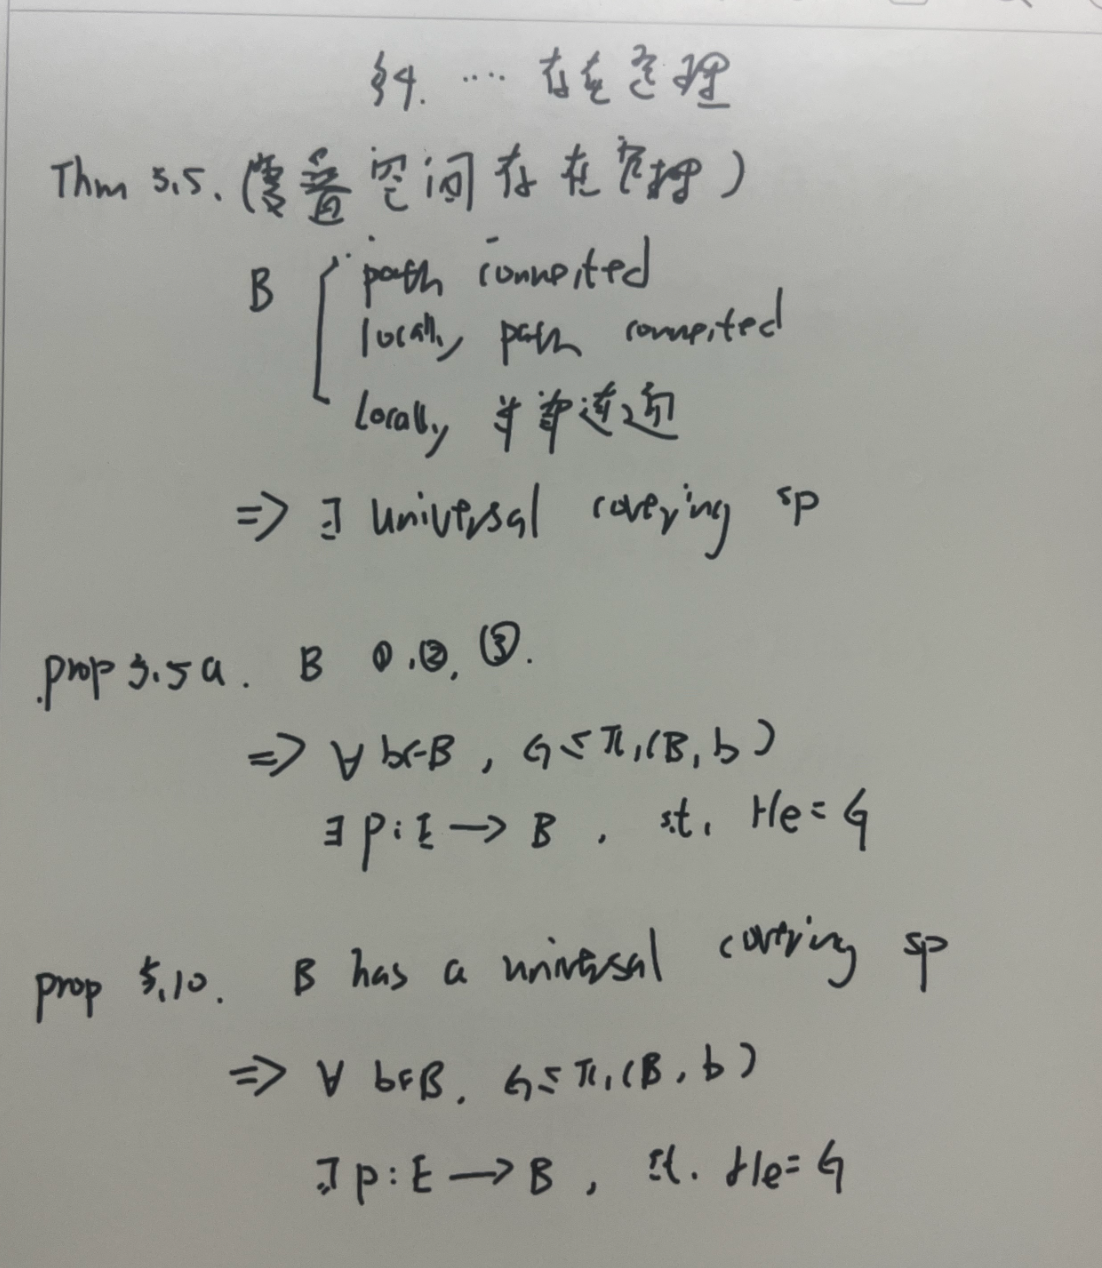 §4. .... 存在定理
Thm 5.5. (覆叠空间存在定理)
B { path connected
locally path connected
locally 半单连通
=> ∃ universal covering sp
prop 5.5a. B ①,②,③.
=> ∀ b∈B, G≤π₁(B,b)
∃ p:E → B, s.t. He=G
prop 5.10. B has a universal covering sp
=> ∀ b∈B. G≤π₁(B,b)
∃ p:E → B, st. He=G